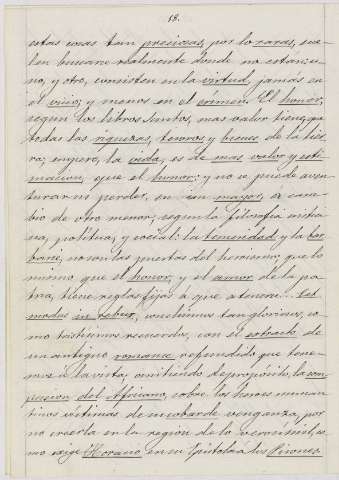 18.
estas cosas tan preciosas, por lo raras, sue-
len buscarse realmente donde no estan: u-
no, y otro, consisten en la virtud, jamás en
el vicio; y menos en el crímen. El honor,
segun los Libros Santos, mas valor tiene, que
todas las riquezas, tesoros y bienes de la tier-
ra; empero, la vida, es de mas valor y esti-
macion, que el honor; y no se puede aven-
turar ni perder, un bien mayor, á cam-
bio de otro menor; segun la filosofía cristia-
na, política, y social: la temeridad y la bar-
barie, no son las puertas del heroismo, que lo
mismo que el honor, y el amor de la pa-
tria, tiene reglas fijas á que atenerse... Est
modus in rebus, concluimos tan gloriosos, co-
mo tristísimos recuerdos, con el extracto de
un antiguo romance refundido que tene-
mos á la vista, omitiendo de propósito, la com-
pasion del Africano, sobre los heroes numan-
tinos víctimas de su cobarde venganza, por
no creerla en la region de lo verosímil, co-
mo exige Horacio en su Epístola á los Pisones